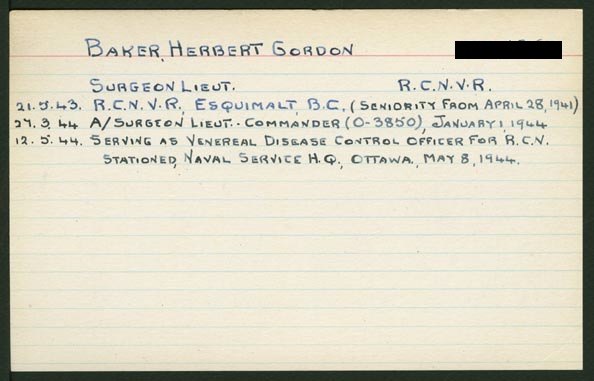 BAKER, HERBERT GORDON
SURGEON LIEUT. R.C.N.V.R.
21.5.43. R.C.N.V.R., ESQUIMALT, B.C. (SENIORITY FROM APRIL 28, 1941)
27.3.44 A/SURGEON LIEUT.-COMMANDER (O-3850), JANUARY 1, 1944
12.5.44. SERVING AS VENEREAL DISEASE CONTROL OFFICER FOR R.C.N.
STATIONED, NAVAL SERVICE H.Q., OTTAWA, MAY 8, 1944.